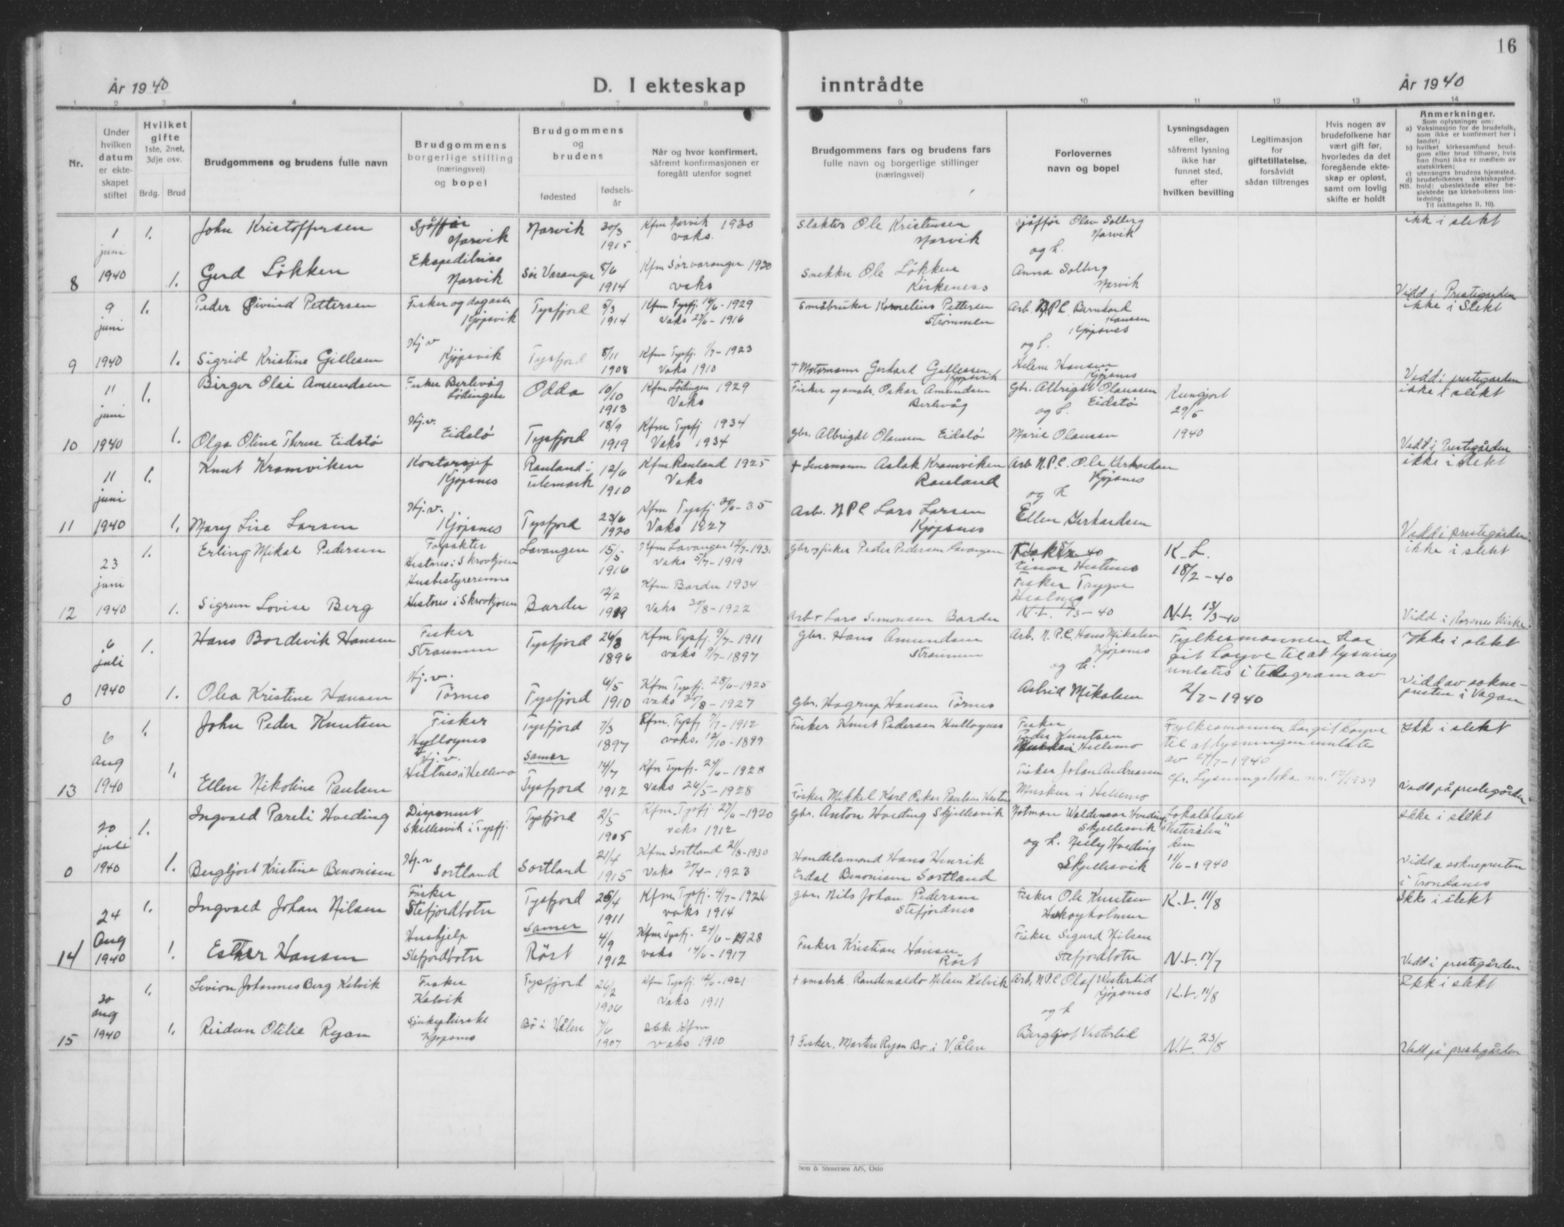 16
År 1940
D. I ekteskap inntrådte
År 1940
1 2 3 4 5 6 7 8 9 10 11 12 13 14
Nr.
Under hvilken datum er ekteskapet stiftet
Hvilket gifte 1ste, 2net, 3dje osv.
Brdg. Brud
Brudgommens og brudens fulle navn
Brudgommens borgerlige stilling (næringsvei) og bopel
Brudgommens og brudens
fødested
fødselsår
Når og hvor konfirmert, såfremt konfirmasjonen er foregått utenfor sognet
Brudgommens fars og brudens fars fulle navn og borgerlige stillinger (næringsvei)
Forlovernes navn og bopel
Lysningsdagen eller, såfremt lysning ikke har funnet sted, efter hvilken bevilling
Legitimasjon for giftetillatelse, forsåvidt sådan tiltrenges
Hvis nogen av brudefolkene har vært gift før, hvorledes da det foregående ekteskap er opløst, samt om lovlig skifte er holdt
Anmerkninger.
8
1 juni 1940
1.
John Kristoffersen
Sjåffør Narvik
Narvik
20/3 1915
Kfm Narvik 1930 vaks.
Slakter Ole Kristensen Narvik
Sjåffør Olav Solberg Narvik og L.
ikke i slekt
1.
Gerd Løkken
Ekspeditrise Narvik
Sør Varanger
8/6 1914
Kfm Sørvaranger 1930 vaks
Snekker Ole Løkken Kirkeness
Anna Solberg Narvik
Viedd i Prestegården
9
9 juni 1940
1.
Peder Øivind Pettersen
Fisker og dagarb Kjøpsvik
Tysfjord
5/3 1914
Kfm Tysfj 1929 Vaks 1916
Småbruker Kornelius Pettersen Strømmen
Arb. N.P.C. Bernhard Hansen Kjøpsnes og L.
ikke i Slekt
1.
Sigrid Kristine Gillesen
Hj.v Kjøpsvik
Tysfjord
8/11 1908
Kfm Tysfj. 1/7-1923 Vaks 1910
+ Motormann Gerhart Gillessen Kjøpsvik
Helene Hansen Kjøpsnes
Viedd i prestegården
10
11 juni 1940
1.
Birger Olai Amundsen
Fisker Berlevåg Lødingen
Odda
10/10 1913
Kfm Lødingen 1929 Vaks
Fisker og småbr. Oskar Amundsen Berlevåg
Gbr. Albrigt Olaussen Eidstø og L.
Kungjort 29/5 1940
ikke i slekt
1.
Olga Oline Therese Eidstø
Hj.v. Eidstø
Tysfjord
18/9 1919
Kfm Tysfj 1934 Vaks 1934
Gbr. Albright Olaussen Eidstø
Marie Olaussen
Viedt i Prestegården
11
11 juni 1940
1.
Knut Kramviken
Kontorsjef Kjøpsnes
Rauland i Telemark
12/6 1910
Kfm Rauland 1925 Vaks
+ Lensmann Aslak Kramviken Rauland
Arb N.P.C. Ole Gerhardsen Kjøpsnes og L
ikke i slekt
1.
Mary Lise Larsen
Hj.v. Kjøpsnes
Tysfjord
23/6 1920
Kfm Tysfj -35 Vaks 1927
Arb. N.P.C Lars Larsen Kjøpsnes
Ellen Gerhardsen
Viedd i prestegården
12
23 juni 1940
1.
Erling Mikal Pedersen
Forpakter Hestnes i Skrovkjosen
Lavangen
15/5 1916
Kfm Lavangen 1931 Vaks 1919
Gbr. og fisker Peder Pedersen Lavangen
Einar Hestnes Fisker Trygve Hestnes
K.L. 18/2-40
ikke i slekt
1.
Sigrun Lovise Berg
Husbestyrerinne Hestnes i Skrovkjosen
Bardu
2/2 1919
Kfm Bardu 1934 vaks 20/8-1922
Arb + Lars Simonsen Bardu
N.L. 17/3-40
N.L. 13/3-40
Viedd i Korsnes kirke
0
6 juli 1940
1.
Hans Bordevik Hansen
Fisker Straumen
Tysfjord
26/8 1896
Kfm Tysfj. 9/7-1911 vaks 9/7-1897
Gbr. Hans Amundsen Straumen
Arb. N.P.C. Hans Mikalsen Kjøpsnes og L.
Fylkesmannen har git løyve til at lysning unlates i telegram av 2/7-1940
Ikke i slekt
1.
Olea Kristine Hansen
Hj.v. Tørnes
Tysfjord
4/5 1910
Kfm Tysfj. 28/6-1925 vaks 28/8-1927
Gbr. Hagrup Hansen Tørnes
Astrid Mikalsen
Vidd av sognepresten i Vågan
13
6 aug 1940
1.
John Peder Knutsen
Fisker Hulløynes
Tysfjord
7/3 1897
Kfm. Tysfj 7/7-1912 vaks. 12/10-1899
Fisker Knut Pedersen Hulløynes
Fisker Peder Knutsen Hellemo
Fylkesmannen har git løyve til at lysningen unlates av 1/7-1940
Ikke i slekt
1.
Ellen Nikoline Paulsen
Hj.v. Hestnes i Hellemo
Samer
Tysfjord
14/7 1912
Kfm Tysfj. 24/6-1928 Vaks 26/5-1928
Fisker Mikkel Karl Oskar Paulsen Hestnes
Fisker Johan Andreassen Musken i Hellemo
cfr. Lysningsboka nr. 17/1939
Viedd på prestegården
0
20 juli 1940
1.
Ingvald Pareli Hveding
Disponent Skjellesvik i Tysfj.
Tysfjord
2/5 1905
Kfm. Tysfj 27/6-1920 vaks 1912
Gbr. Anton Hveding Skjellesvik
Postman Waldemar Hveding Skjellesvik og L. Nelly Hveding Skjellesvik
Lokalbladet "Vesterålen" den 11/6-1940
Ikke i slekt
1.
Bergljot Kristine Benonisen
Hj.v Sortland
Sortland
21/4 1915
Kfm Sortland 2/8-1930 Vaks 20/4-1923
Handelsmand Hans Henrik Erdal Benonisen Sortland
Vidd a sokneprsten i Trondanes
14
24 Aug 1940
1.
Ingvald Johan Nilsen
Fisker Stefjordbotn
Tysfjord
25/4 1911
Kfm. Tysfj. 4/7-1926 vaks 1914
Gbr. Nils Johan Pedersen Stefjordnes
Fisker Ole Knutsen Haakøyholmen
K.L. 11/8
Ikke i slekt
1.
Esther Hansen
Hushjelp Stefjordbotn
Samer
Røst
4/9 1912
Kfm Tysfj. 24/6-1928 vaks 14/6-1917
Fisker Kristian Hansen Røst
Fisker Sigurd Nilsen Stefjordbotn
N.L. 17/7
Viedt i prestegården
15
30 aug 1940
1.
Sevion Johannes Berg Kalvik
Fisker Kalvik
Tysfjord
26/2 1906
Kfm Tysfj. 1921 Vaks 1911
+ småbrk. Randenaldo Nilsen Kalvik
Arb. N.P.C Olaf Vesterlid Kjøpsnes og L
K.L. 11/8
Ikke i slekt
1.
Reidun Otilie Ryan
Sjukepleierske Kjøpsnes
Bø i Vålen
7/6 1907
ikke Kfm vaks 1910
+ Fisker. Martin Ryan Bø i Vålen
Bergljot Vesterlid
N.L. 23/8
Viedd på prestegården
Sem & Stenersen A/S, Oslo